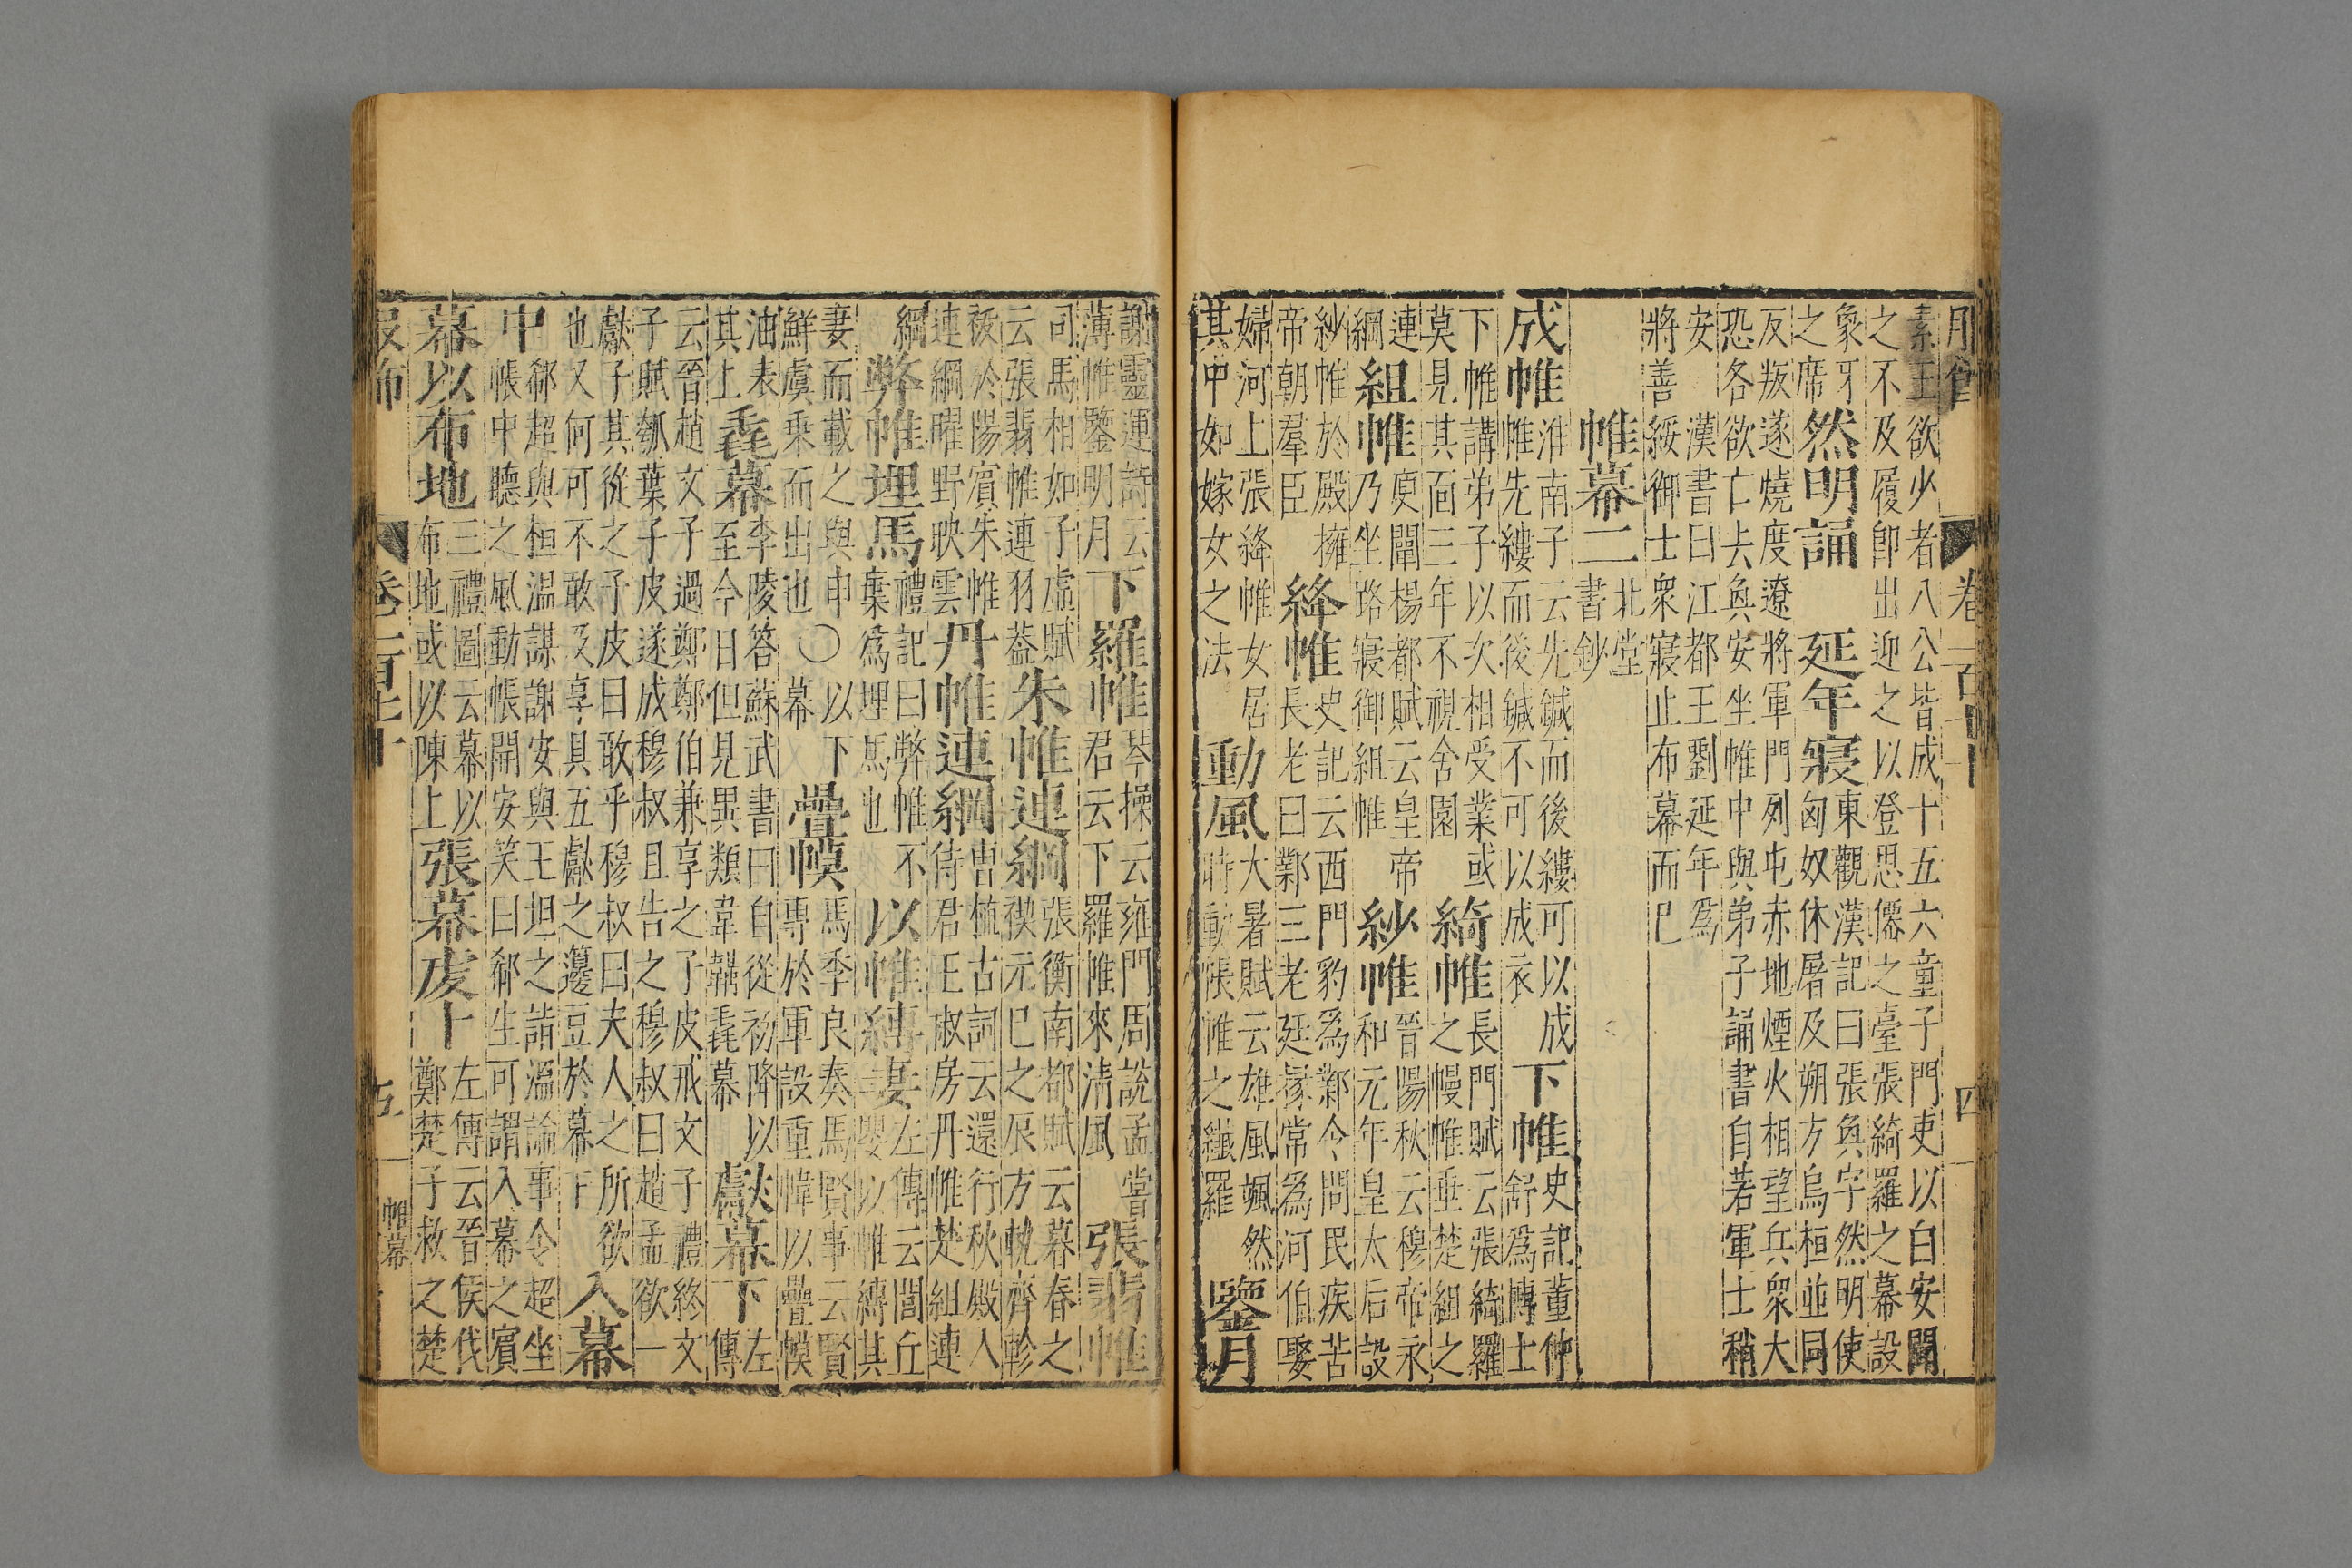 服食 卷一百七十 四
素王欲少者八公皆成十五六童子門吏以白安聞
之不及履卽出迎之以登思僊之臺張綺羅之幕設
象牙之席 然明誦 延年寢 東觀漢記曰張奐字然明使匈奴休屠及朔方烏桓並同
反叛遂燒度遼將軍門列屯赤地煙火相望兵衆大
恐各欲亡去奐安坐帷中與弟子誦書自若軍士稍
安 漢書曰江都王劉延年爲
將善綏御士衆寢止布幕而已
帷幕二 北堂書鈔
成帷 淮南子云先鍼而後縷可以成帷先縷而後鍼不可以成衣 下帷 史記董仲舒爲博士
下帷講弟子以次相受業或莫見其面三年不視舍園 綺帷 長門賦云張綺羅之幔帷垂楚組之
連綱 組帷 庾闡楊都賦云皇帝乃坐路寢御組帷 紗帷 晉陽秋云穆帝永和元年皇太后設
紗帷於殿擁帝朝羣臣 絳帷 史記云西門豹爲鄴令問民疾苦長老曰鄴三老廷掾常爲河伯娶
婦河上張絳帷女居其中如嫁女之法 動風 大暑賦云雄風颯然時動帳帷之纖羅 鑒月
謝靈運詩云薄帷鑒明月 下羅帷 琴操云雍門周說孟嘗君云下羅帷來清風 張翡帷
司馬相如子虛賦云張翡帷連羽葢 朱帷連綱 張衡南都賦云暮春之禊元巳之辰方軌齊軫
祓於陽濱朱帷連綱曜野映雲 丹帷連綱 曹植古詞云還行秋殿入侍君王椒房丹帷楚組連
綱 弊帷埋馬 禮記曰弊帷不棄爲埋馬也 以帷縛妻 左傳云閭丘嬰以帷縛其
妻而載之與申鮮虞乘而出也 〇以下幕 疊幙 馬季良奏馬賢事云賢專於軍設重幃以疊幙
油表其上 毳幕 李陵答蘇武書曰自從初降以至今日但見異類韋韝毳幕 獻幕下 左傳
云晉趙文子過鄭鄭伯兼享之子皮戒文子禮終文
子賦瓠葉子皮遂成穆叔且告之穆叔曰趙孟欲一
獻子其從之子皮曰敢乎穆叔曰夫人之所欲
也又何可不敢及享具五獻之籩豆於幕下 入幕
中 郗超與桓溫謀謝安與王坦之詣溫論事令超坐帳中聽之風動帳開安笑曰郗生可謂入幕之賓
幕以布地 三禮圖云幕以布地或以陳上 張幕虔卜 左傳云晉侯伐鄭楚子救之楚
服飾 卷一百七十 五 帷幕